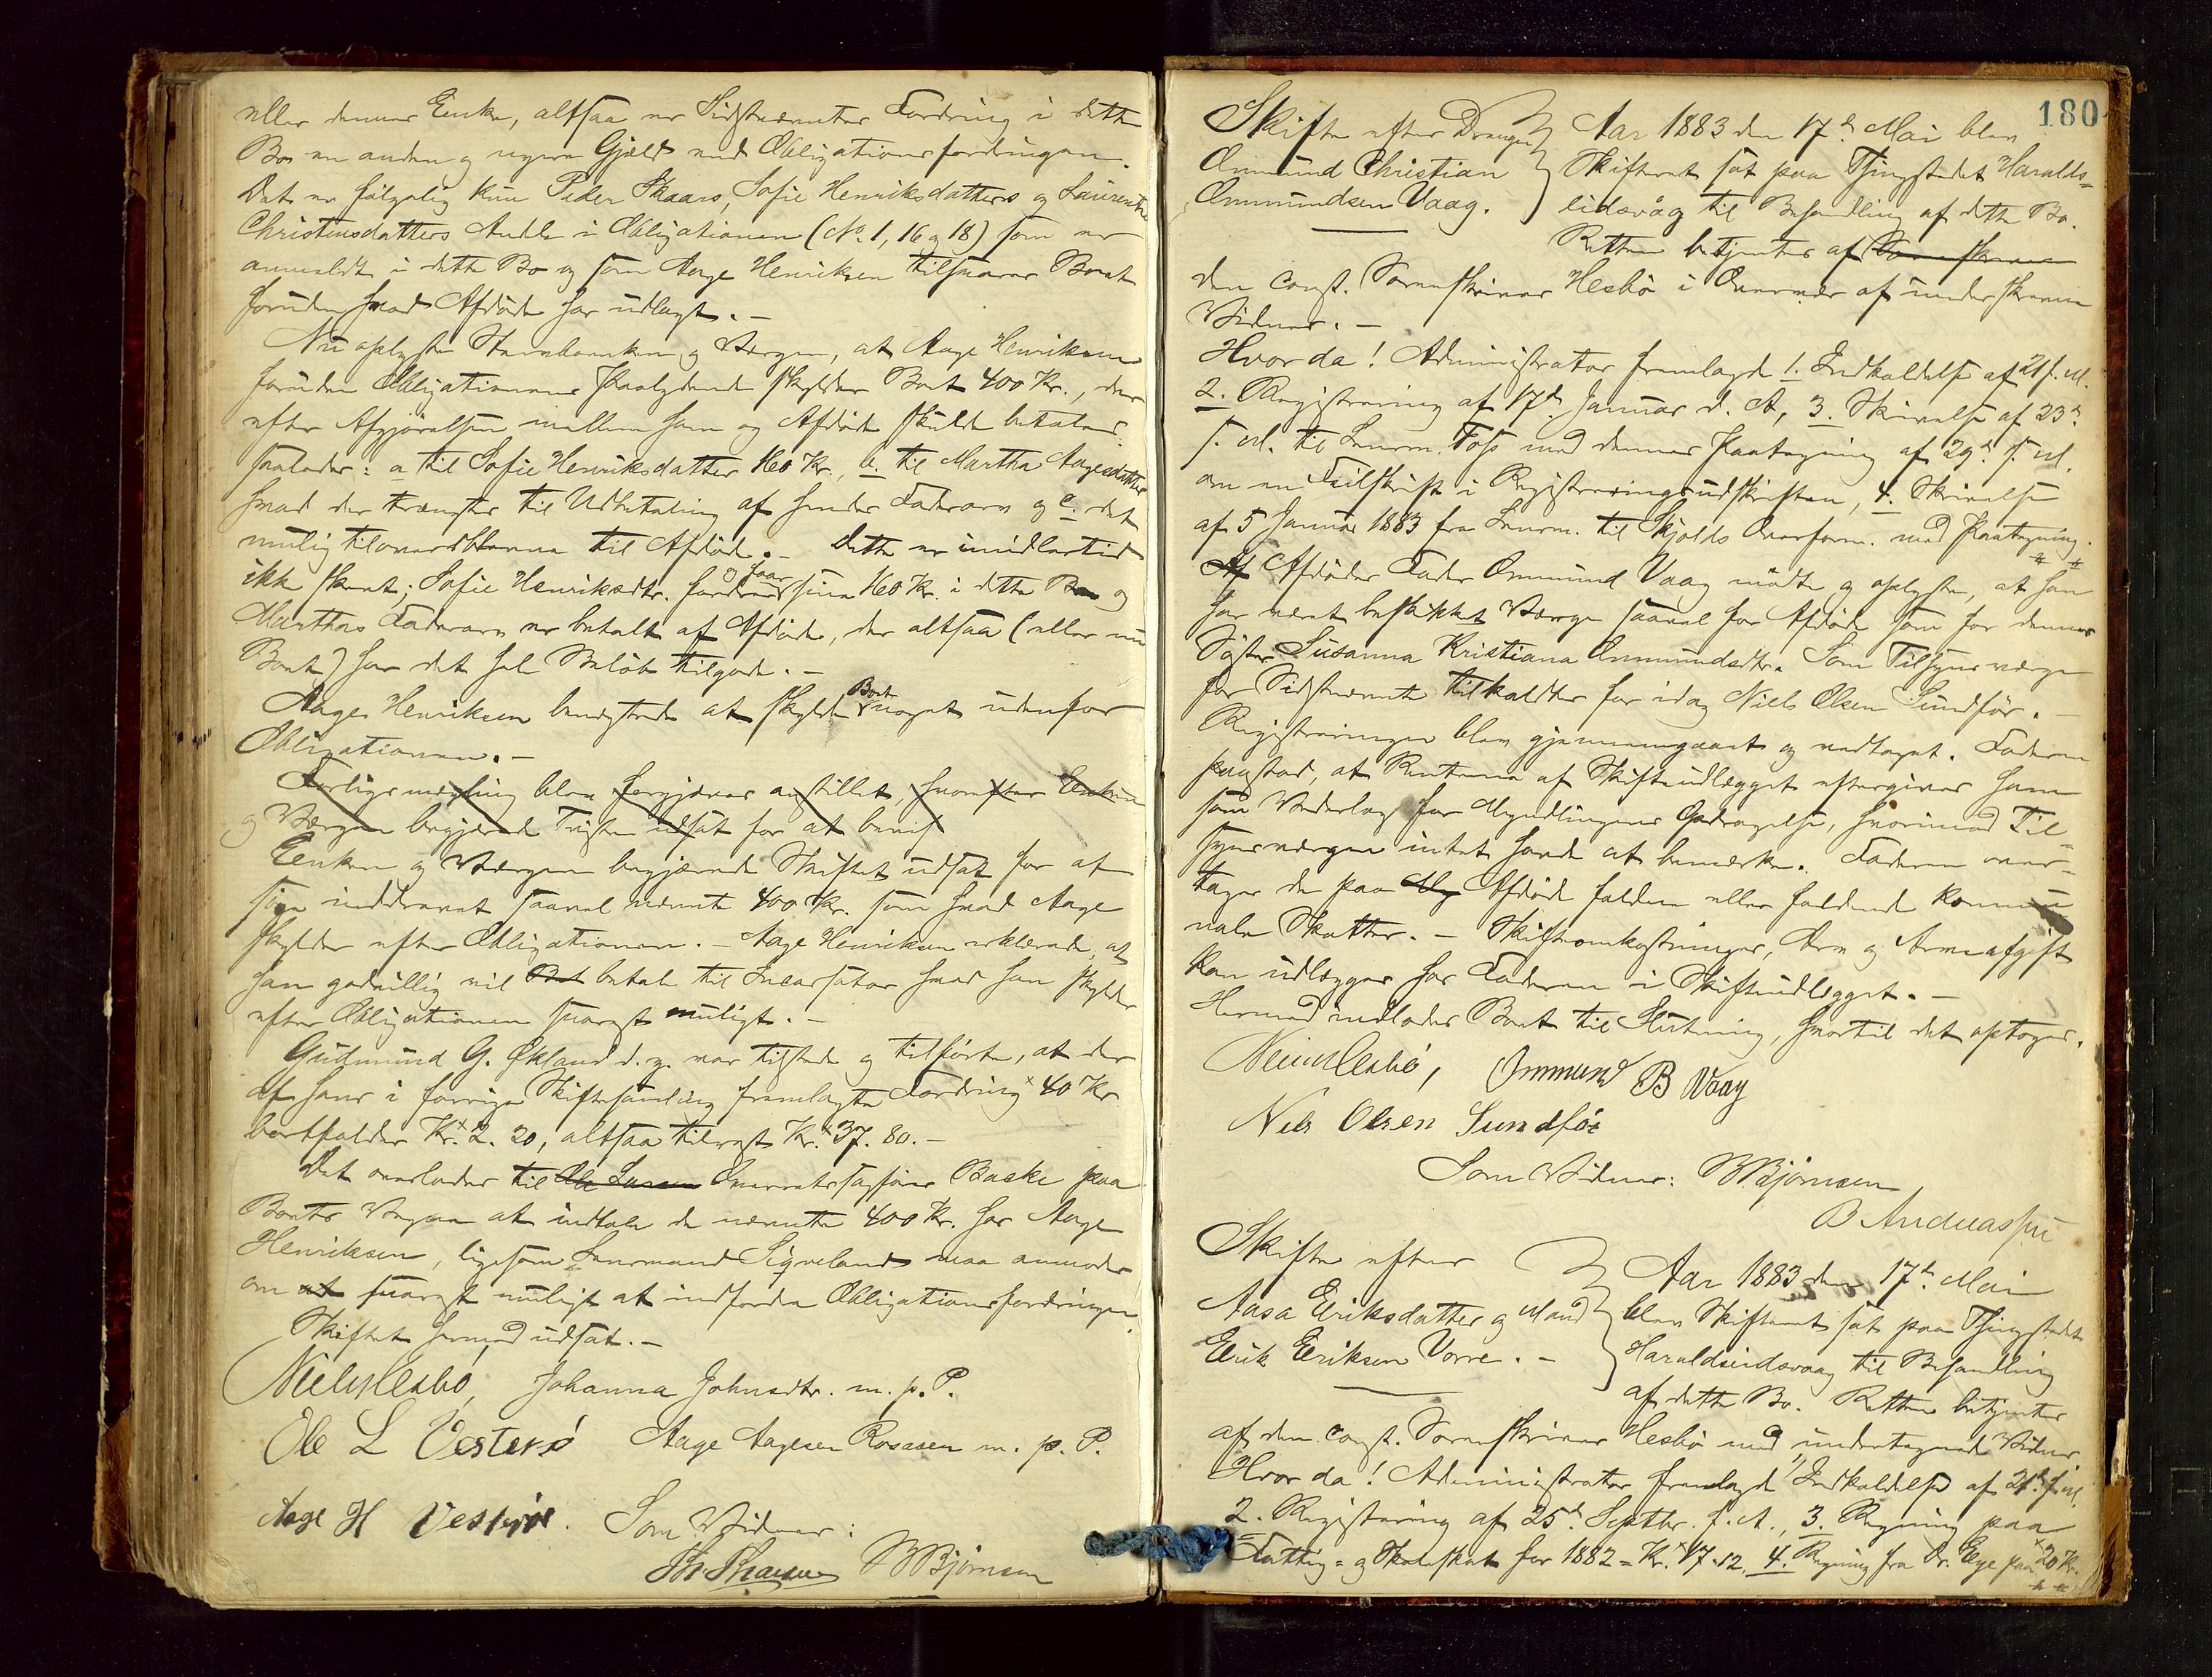 eller dennes Enke, altsaa er Sidstnævntes Fordring i dette
Bo en anden og nyere Gjæld end Obligationsfordringen.
Det er følgelig kun Peder Skaars, Sofie Henriksdatters og Laurentse
Christensdatters Andele i Obligationen (No. 1, 16 og 18) som er
anmeldt i dette Bo og som Aage Henriksen tilsvarer Boet
foruden hvad Afdøde har udlagt. –
Nu oplyste Stervboenken og Værgen, at Aage Henriksen
foruden Obligationens Paalydende skylder Boet 400 Kr., der
efter Afgjørelsen mellem ham og Afdøde skulde betales
saaledes: a til Sofie Henriksdatter 160 Kr., b. til Martha Aagesdatter
hvad der trængtes til Udbetaling af hendes Fadearv og c. det
mulig tiloversblevne til Afdøde. – Dette er imidlertid
ikke skeet; Sofie Henriksdtr. fordrer og faar sine 160 Kr. i dette Bo og
Marthas Fadearv er betalt af Afdøde, der altsaa (eller nu
Boet) har det hele Beløb tilgode. –
Aage Henriksen benegtede at skylde Boet noget udenfor
Obligationen. –
Forligsmægling blev forgjæves anstillet, hvorefter Enken
og Værgen begjærede Skiftet udsat for at bevis
Enken og Værgen begjærede Skiftet udsat for at
faa inddrevet saavel nævnte 400 Kr. som hvad Aage
skylder efter Obligationen. – Aage Henriksen erklærede, at
han godvillig vil Bet betale til Incassator hvad han skylder
efter Obligationen snarest muligt. –
Gudmund G. Økland d. y. var tilstede og tilførte, at der
af hans i forrige Skiftesamling fremlagte Fordring 40 Kr
bortfalder Kr. 2. 20, altsaa tilrest Kr. 37. 80. –
Det overlades til Ole Larsen Overretssagfører Baske paa
Boets Vegne at indtale de nævnte 400 Kr. hos Aage
Henriksen, ligesom Lensmand Siqveland maa anmodes
om at snarest muligt at indfordre Obligationsfordringen
Skiftet hermed udsat. –
Niels Hesbø, Johanna Johnsdtr. m. p. P.
Ole L Vesterø Aage Aagesen Rossen m. p. P.
Aage H Vestrøe. Som Vidner:
BBjørnsen
180
Skifte efter Drengen
Ommund Christian
Ommundsen Vaag.
Aar 1883 den 17de Mai blev
Skifteret sat paa Thingstedet Haralds-
eidsvåg til Behandling af dette Bo.
Retten betjentes af Sorenskriver
den const. Sorenskriver Hesbø i Overvær af underskrevne
Vidner. –
Hvorda! Administrator fremlagde 1. Indkaldelse af 21 f. M.
2. Registrering af 17de Januar d. A, 3. Skrivelse af 23de
f. M. til Lensm. Foss med dennes Paategning af 29de f. M.
om en Feilskrift i Registreringsudskriften, 4. Skrivelse
af 5 Januar 1883 fra Lensm. til Skjolds Overform. med Paategning.
Af Afdødes Fader Ommund Vaag mødte og oplyste, at han
har været beskikket Værge saavel for Afdøde som for dennes
Søster Susanna Kristiana Ommundsdtr. Som Tilsynsværge
for Sidstnævnte tilkaldtes for idag Niels Olsen Sundfør. –
Registreringen blev gjennemgaaet og vedtaget. Faderen
paastod, at Renterne af Skifteudlægget eftergives ham
som Vederlag for Myndlingens Opdragelse, hvorimod Til-
synsværgen intet havde at bemærke. Faderen over-
tager de paa My Afdøde faldne eller faldende kommu-
nale Skatter. – Skifteomkostninger, Arv og Arveafgift
kan udlægges hos Faderen i Skifteudlægget. –
Hermed indlodes Boet til Slutning, hvortil det optoges.
Niels Hesbø, Ommund B Vaag
Nels Olsen Sundför
Som Vidner: BBjørnsen
B Andreassen
Skifte efter
Aasa Eriksdatter og Mand
Erik Eriksen Vorre. –
Aar 1883 den 17de Mai
blev Skifteret sat paa Thingstedet
Haraldseidsvaag til Behandling
af dette Bo. Retten betjentes
af den const. Sorenskriver Hesbø med undertegnede Vidner
Hvorda! Administrator fremlagde 1, Indkaldelse af 21de f. M.
2. Registrering af 25de Septbr. f. A., 3. Regning paa
Fattig- og Skoleskat for 1882 = Kr. 17.12, 4. Regning fra Dr. Eege paa 20 Kr.